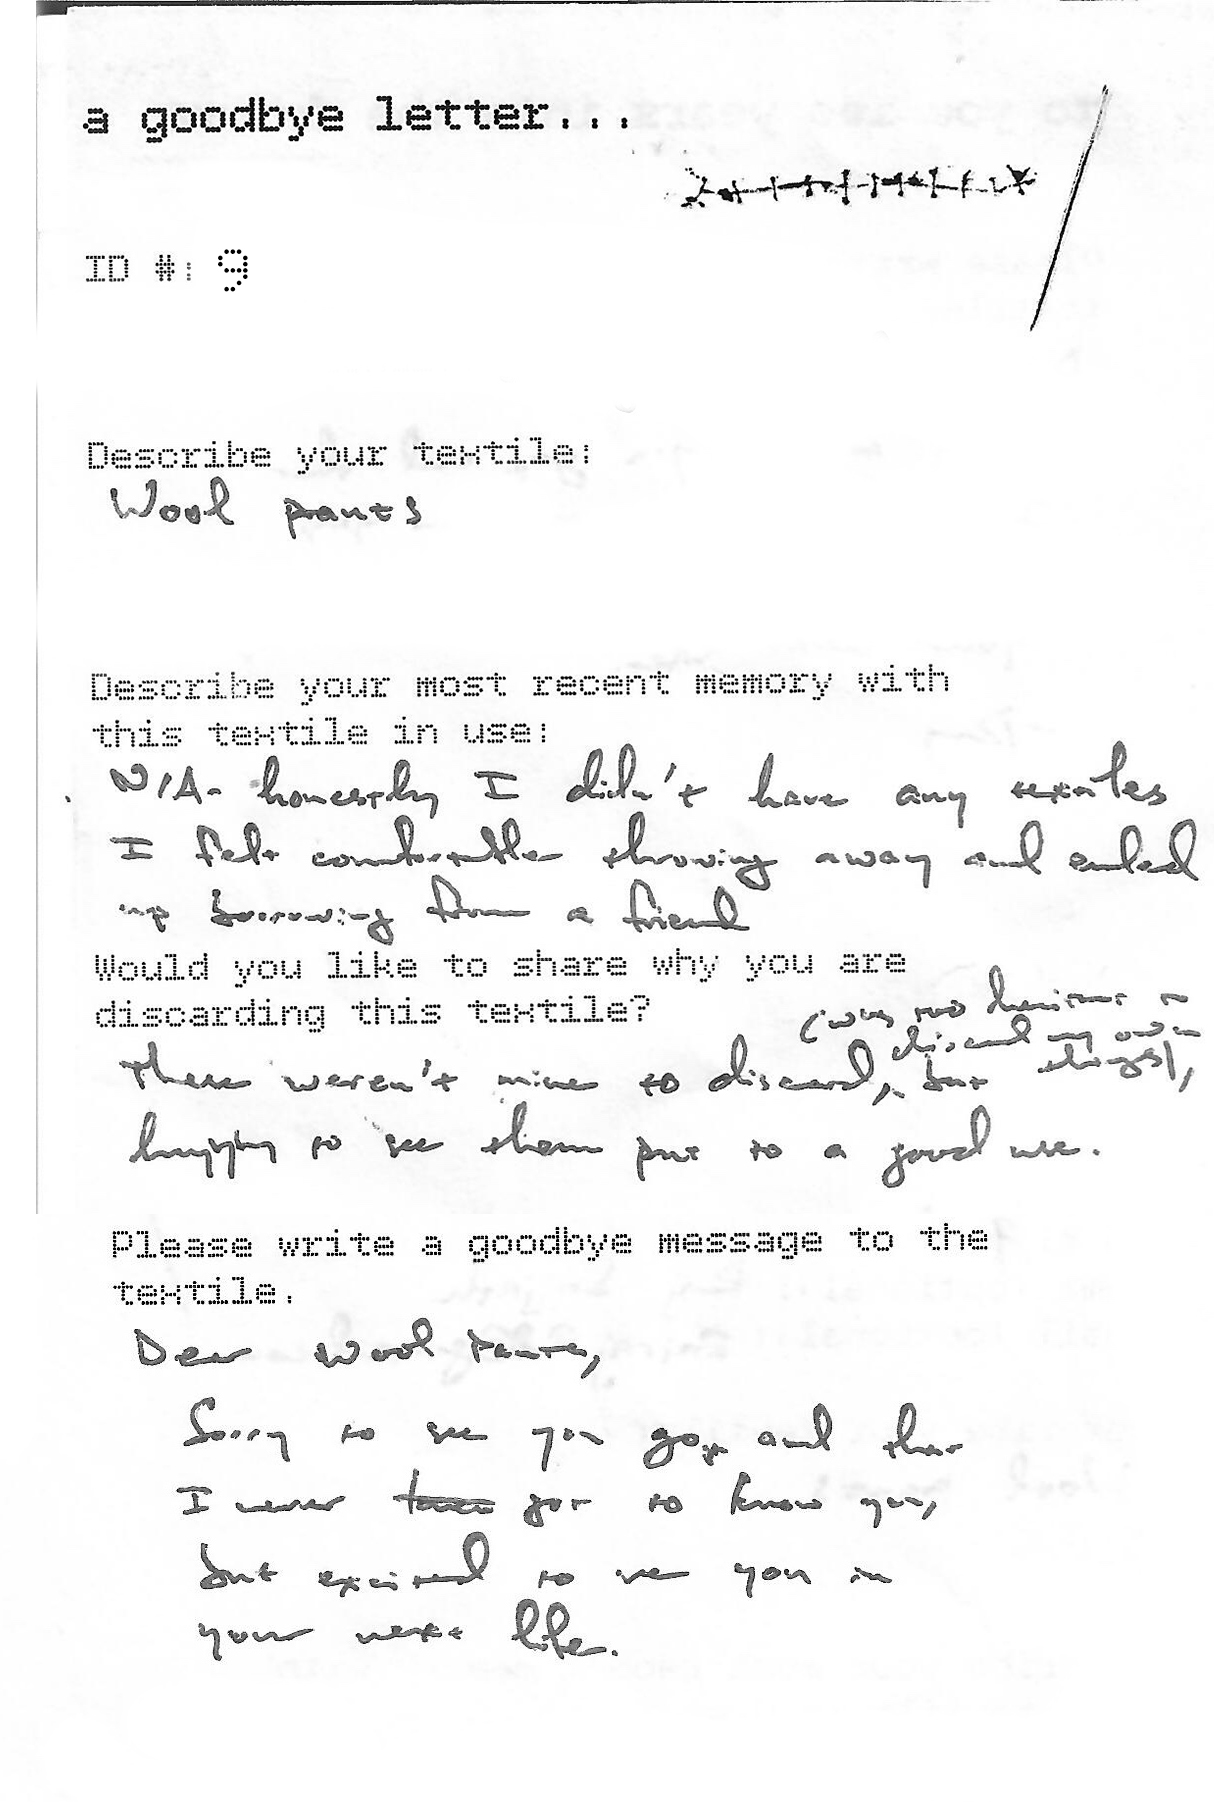 a goodbye letter...
ID #: 9
Describe your textile:
Wool pants
Describe your most recent memory with
this textile in use:
N/A - honestly I didn't have any textiles
I felt comfortable throwing away and ended
up borrowing from a friend
Would you like to share why you are
discarding this textile?
(was too hesitant to
discard my own
these weren't mine to discard, but things),
happy to see them put to a good use.
Please write a goodbye message to the
textile.
Dear Wool Pants,
Sorry to see you go, and that
I never got to know you,
but excited to see you in
your next life.